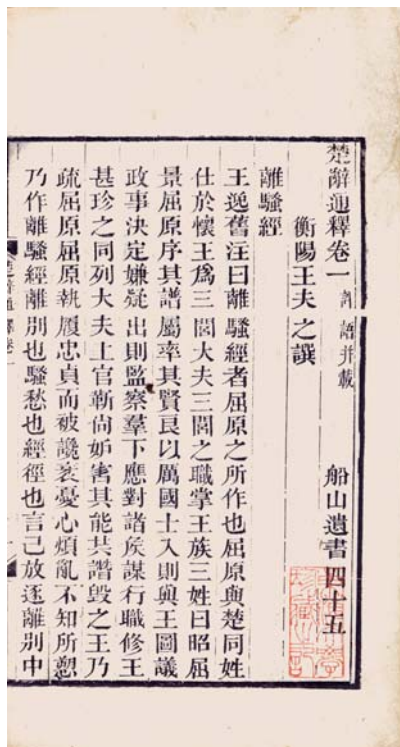 楚辭通釋卷一 船山遺書四十五
衡陽王夫之譔
離騷經
王逸舊注曰離騷經者屈原之所作也屈原與楚同姓
仕於懷王爲三閭大夫三閭之職掌王族三姓曰昭屈
景屈原序其譜屬率其賢良以厲國士入則與王圖議
政事決定嫌疑出則監察羣下應對諸矦謀行職修王
甚珍之同列大夫上官靳尙妒害其能共譖毀之王乃
疏屈原屈原執履忠貞而被讒衺憂心煩亂不知所愬
乃作離騷經離別也騷愁也經徑也言己放逐離別中